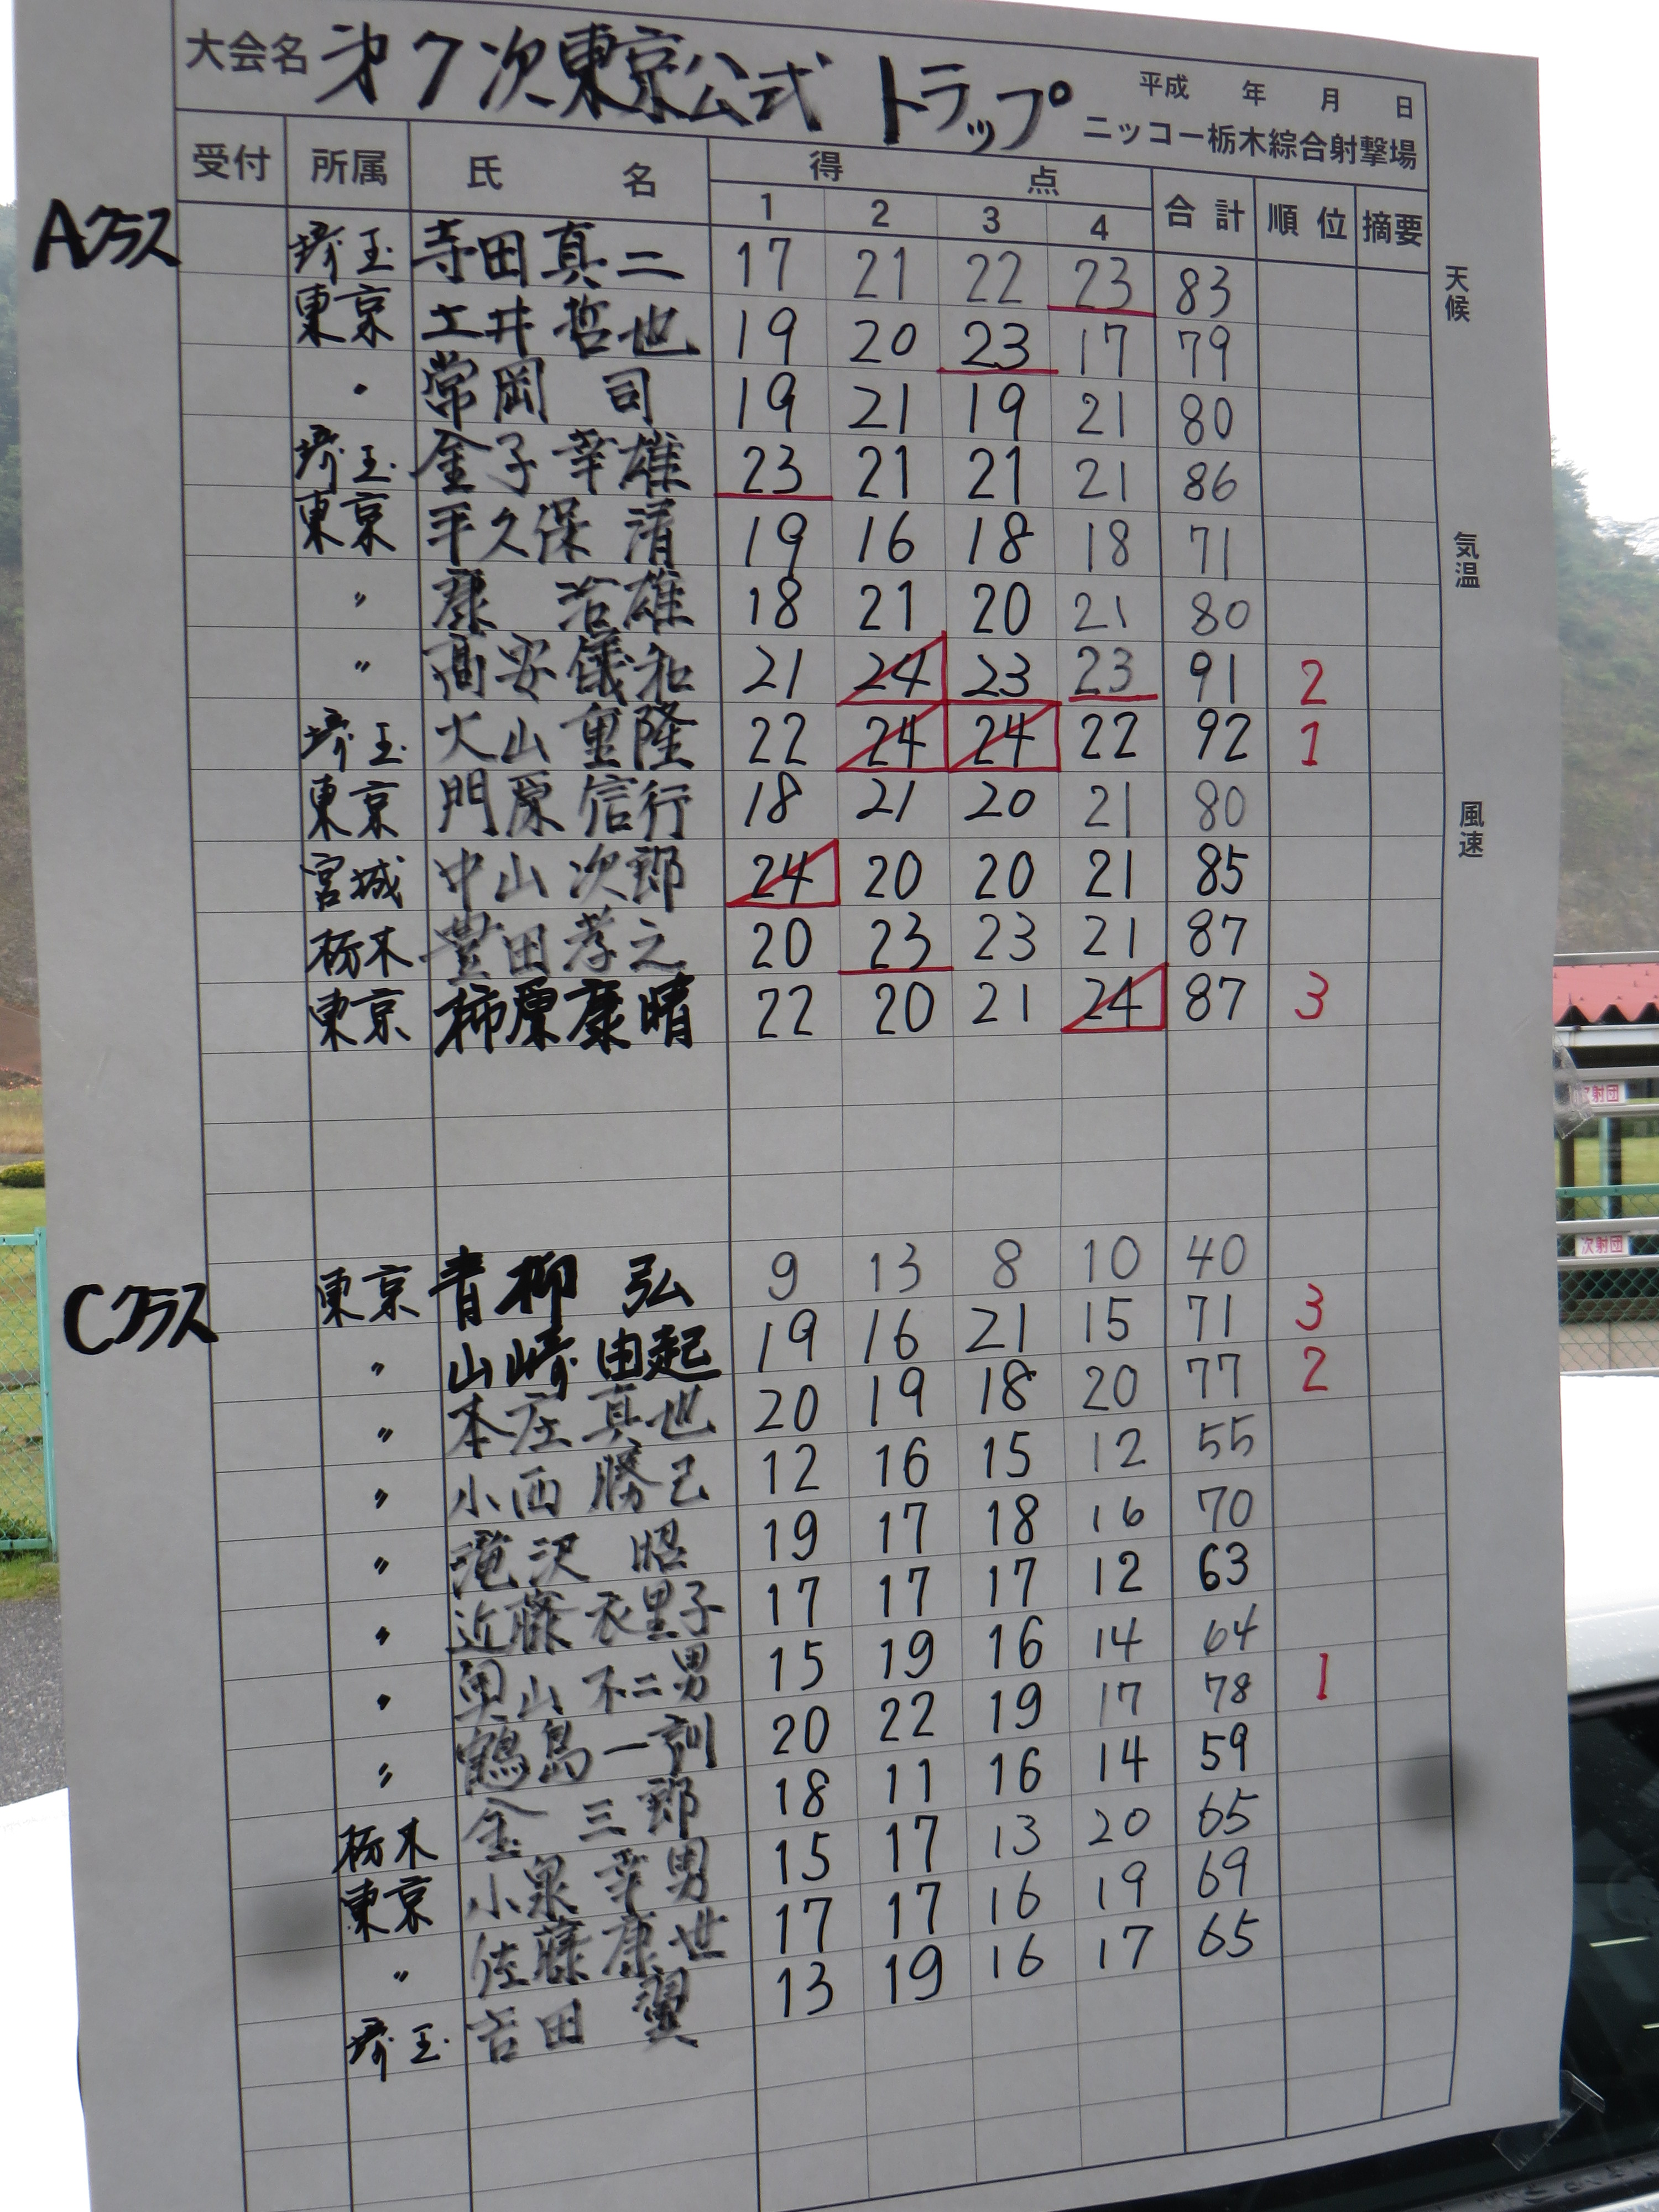 大会名 第7次東京公式 トラップ 平成 年 月 日
ニッコー栃木綜合射撃場
受付 所属 氏 名 得 点 合計 順位 摘要
1 2 3 4
Aクラス 埼玉 寺田真二 17 21 22 23 83
東京 土井哲也 19 20 23 17 79
〃 常岡 司 19 21 19 21 80
埼玉 金子幸雄 23 21 21 21 86
東京 平久保 清 19 16 18 18 71
〃 治雄 18 21 20 21 80
〃 髙安儀和 21 24 23 23 91 2
埼玉 大山重隆 22 24 24 22 92 1
東京 門原信行 18 21 20 21 80
宮城 中山次郎 24 20 20 21 85
栃木 豊田孝之 20 23 23 21 87
東京 柿原康晴 22 20 21 24 87 3
Cクラス 東京 青柳 弘 9 13 8 10 40
〃 山崎由起 19 16 21 15 71 3
〃 本庄真也 20 19 18 20 77 2
〃 小西勝己 12 16 15 12 55
〃 滝沢 昭 19 17 18 16 70
〃 近藤衣里子 17 17 17 12 63
〃 奥山不二男 15 19 16 14 64
〃 鶴島一訓 20 22 19 17 78 1
栃木 金 三郎 18 11 16 14 59
東京 小泉幸男 15 17 13 20 65
〃 佐藤康世 17 17 16 19 69
埼玉 吉田 翼 13 19 16 17 65
天候
気温
風速
次射団
次射団